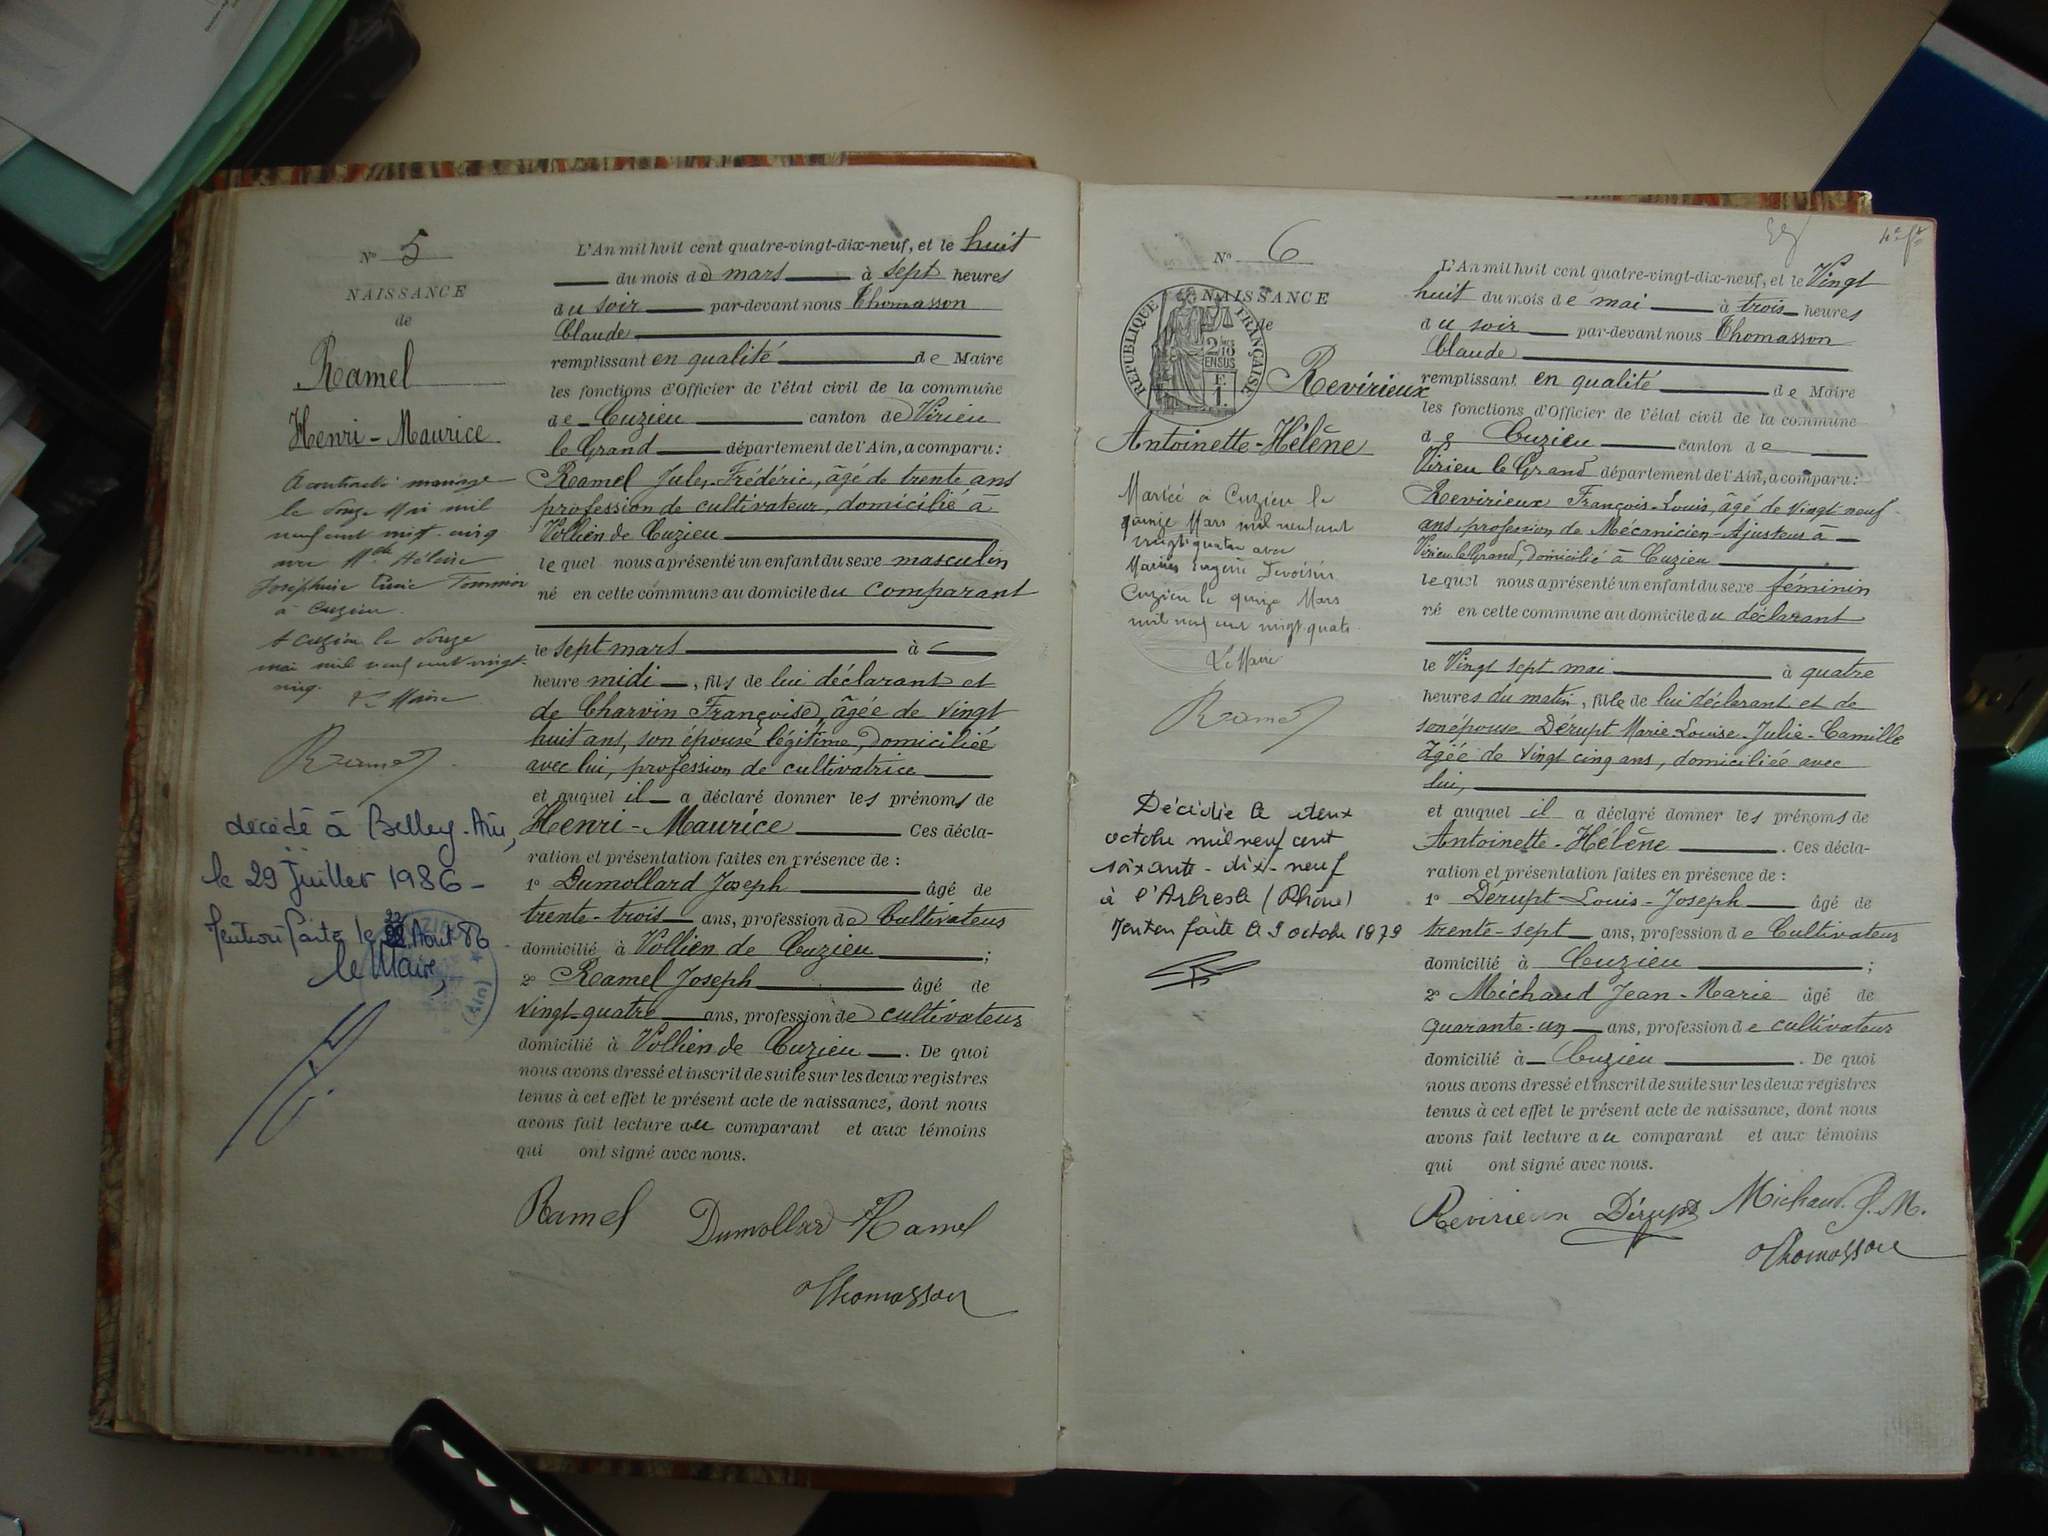 N° 5
NAISSANCE
de
Ramel
Henri-Maurice
A contracté mariage
le douze Mai mil
neuf cent vingt-cinq
avec Mlle Hélène
Joséphine
à Cuzieu.
A Cuzieu le douze
mai mil neuf cent vingt-
cinq.
Le Maire
décédé à Belley-Ain,
le 29 Juillet 1986-
Mention faite le 22 Août 86
le Maire,
L'An mil huit cent quatre-vingt-dix-neuf, et le huit
du mois de mars à sept heures
du soir par-devant nous Thomasson
Claude
remplissant en qualité de Maire
les fonctions d'Officier de l'état civil de la commune
de Cuzieu canton de Virieu
le Grand département de l'Ain, a comparu:
Ramel Jules-Frédéric, âgé de trente ans
profession de cultivateur, domicilié à
Vollien de Cuzieu
lequel nous a présenté un enfant du sexe masculin
né en cette commune au domicile du comparant
le sept mars à
heure midi, fils de lui déclarant et
de Charvin Françoise, âgée de vingt
huit ans, son épouse légitime, domiciliée
avec lui, profession de cultivatrice
et auquel il a déclaré donner les prénoms de
Henri-Maurice Ces décla-
ration et présentation faites en présence de :
1° Dumollard Joseph âgé de
trente-trois ans, profession de Cultivateur
domicilié à Vollien de Cuzieu ;
2° Ramel Joseph âgé de
vingt-quatre ans, profession de cultivateur
domicilié à Vollien de Cuzieu . De quoi
nous avons dressé et inscrit de suite sur les deux registres
tenus à cet effet le présent acte de naissance, dont nous
avons fait lecture au comparant et aux témoins
qui ont signé avec nous.
Ramel Dumollard Ramel
Thomasson
N° 6
NAISSANCE
de
RÉPUBLIQUE FRANÇAISE
2/10
EN SUS
F.
1.
Revirieux
Antoinette-Hélène
Mariée à Cuzieu le
quinze Mars mil neuf cent
vingt quatre avec
Marius Eugène
Cuzieu le quinze Mars
mil neuf cent vingt-quatre
Le Maire
Décédée le deux
octobre mil neuf cent
soixante-dix-neuf
à l'Arbresle (Rhône)
Mention faite le 9 octobre 1979
L'An mil huit cent quatre-vingt-dix-neuf, et le Vingt
huit du mois de mai à trois heures
du soir par-devant nous Thomasson
Claude
remplissant en qualité de Maire
les fonctions d'Officier de l'état civil de la commune
de Cuzieu canton de
Virieu le Grand département de l'Ain, a comparu:
Revirieux François-Louis, âgé de vingt neuf
ans, profession de Mécanicien-Ajusteur à
Virieu le Grand, domicilié à Cuzieu
lequel nous a présenté un enfant du sexe féminin
né en cette commune au domicile du déclarant
le Vingt sept mai à quatre
heures du matin, fille de lui déclarant et de
son épouse Dérupt Marie-Louise-Julie-Camille
âgée de vingt cinq ans, domiciliée avec
lui,
et auquel il a déclaré donner les prénoms de
Antoinette-Hélène . Ces décla-
ration et présentation faites en présence de :
1° Dérupt Louis-Joseph âgé de
trente-sept ans, profession de Cultivateur
domicilié à Cuzieu ;
2° Michaud Jean-Marie âgé de
quarante-un ans, profession de cultivateur
domicilié à Cuzieu . De quoi
nous avons dressé et inscrit de suite sur les deux registres
tenus à cet effet le présent acte de naissance, dont nous
avons fait lecture au comparant et aux témoins
qui ont signé avec nous.
Revirieux Dérupt Michaud J. M.
Thomasson